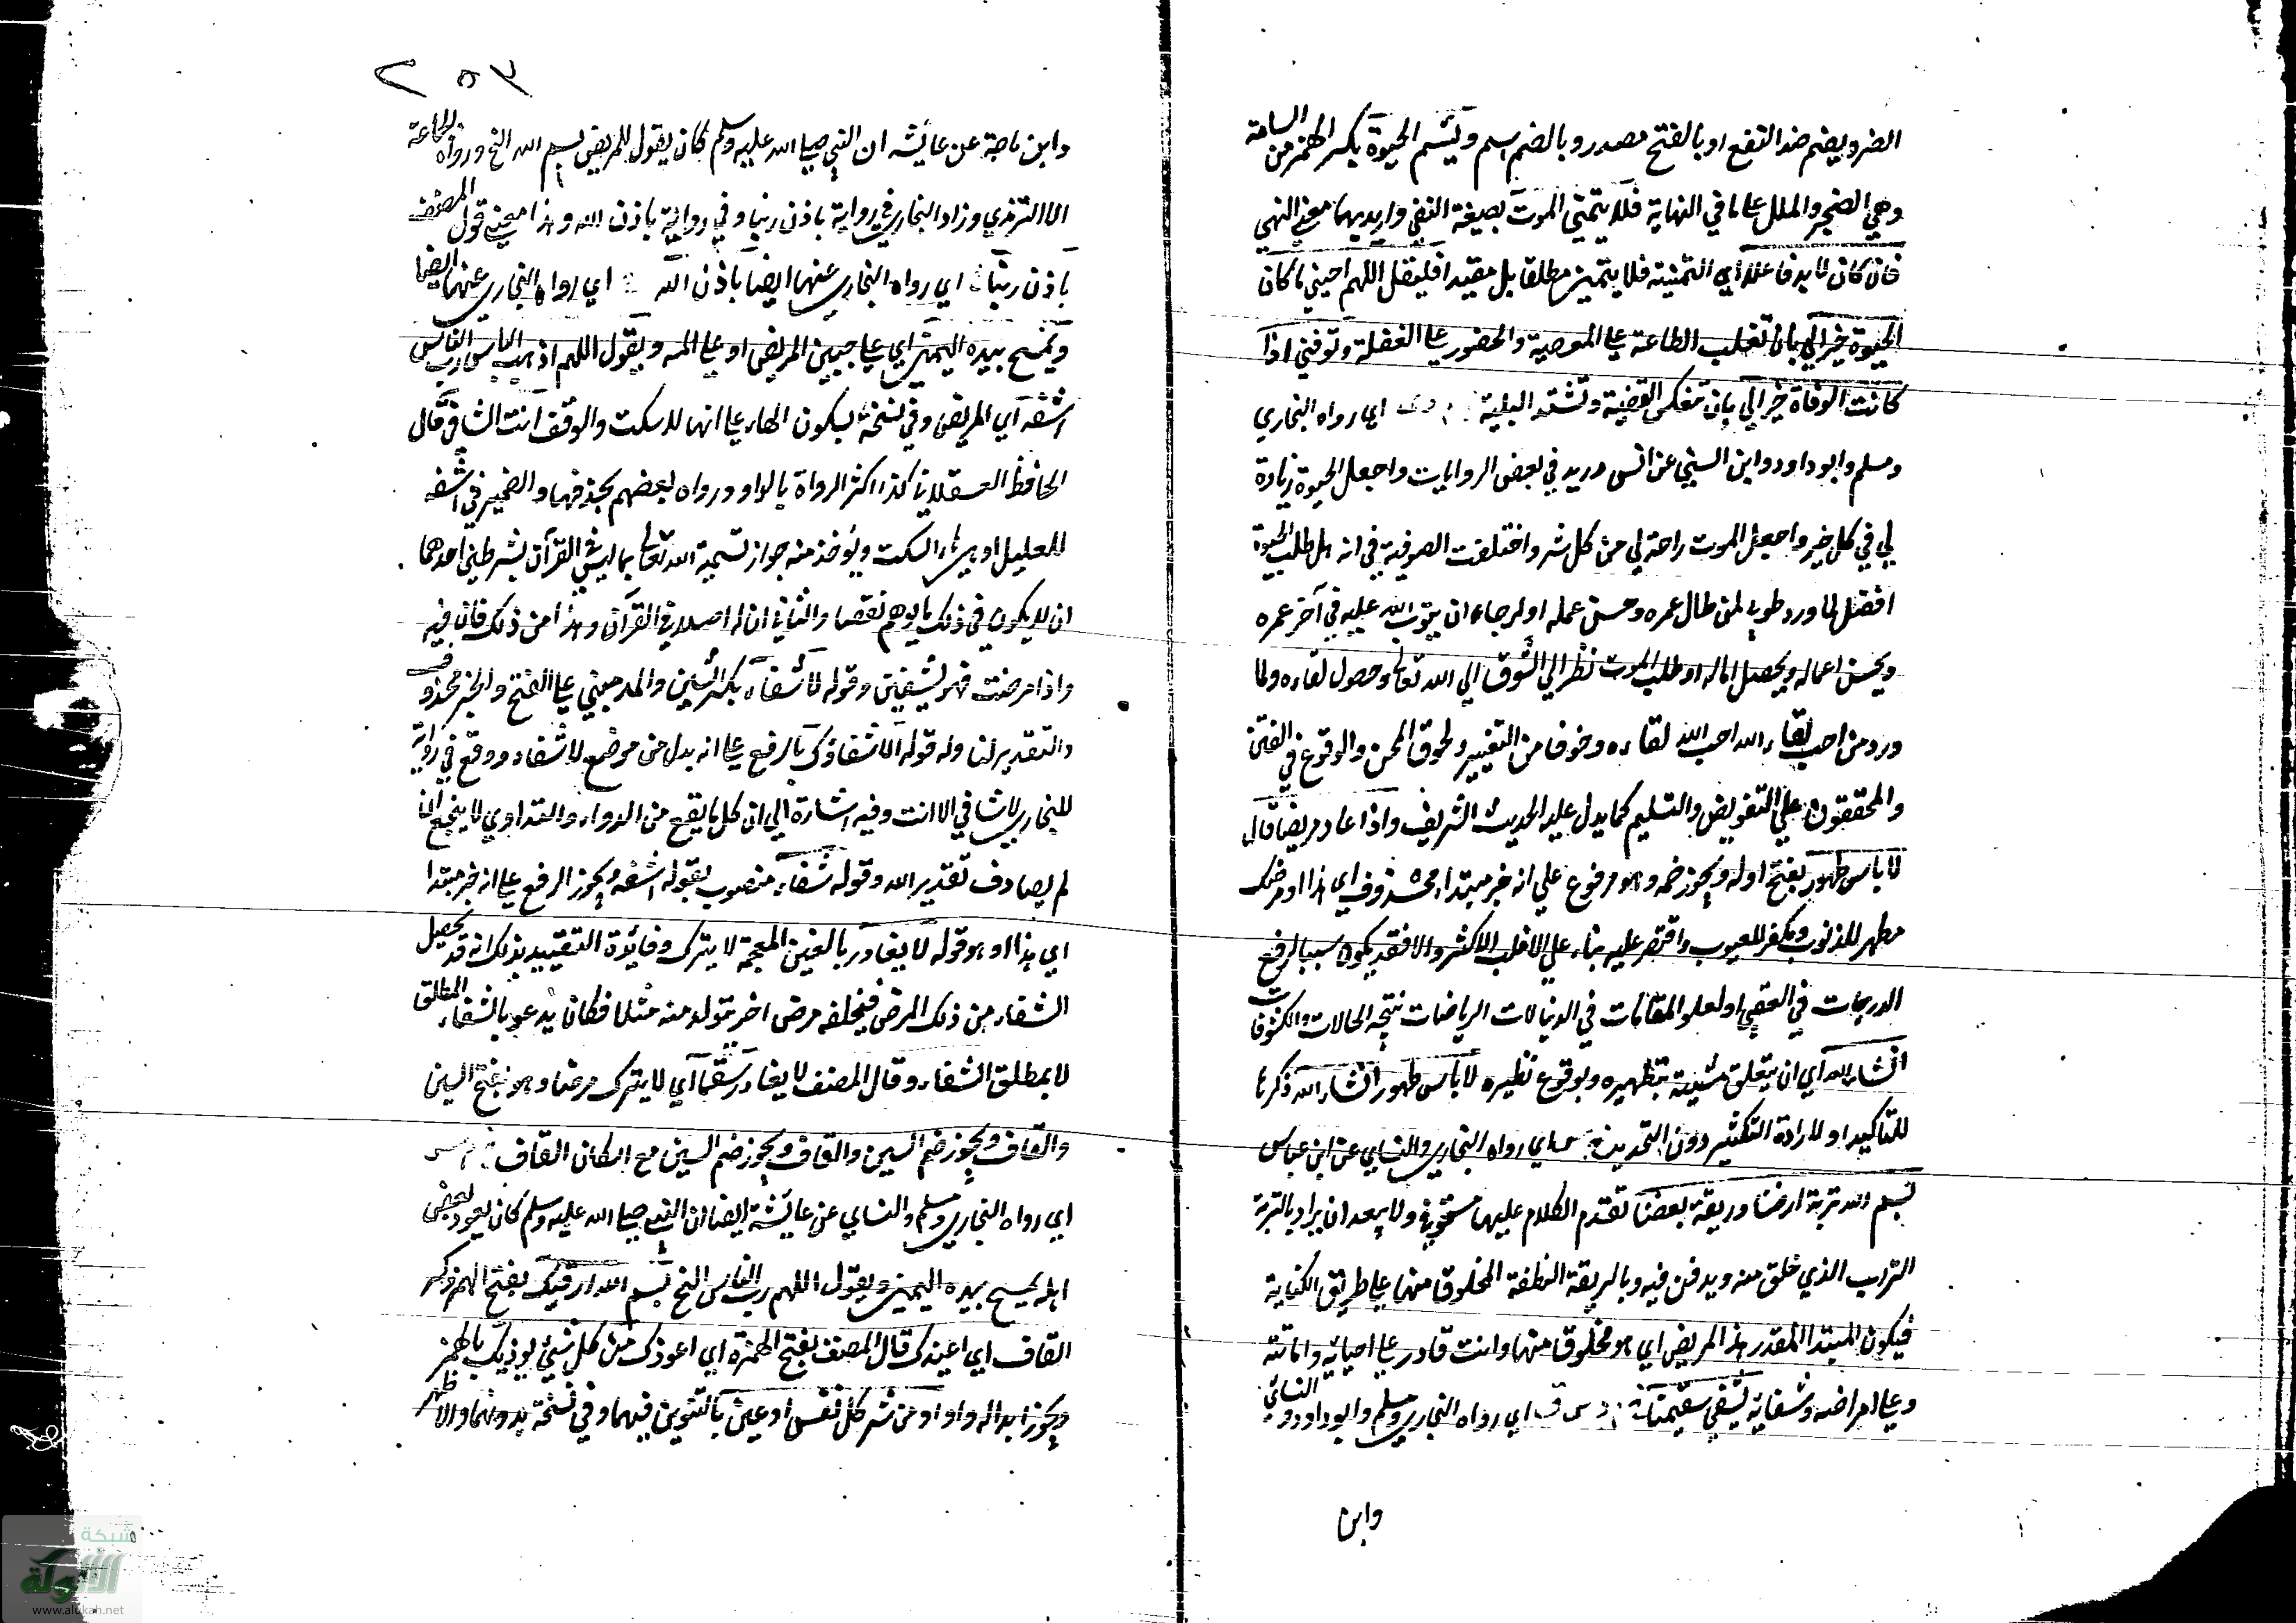 الضر ويضم ضد النفع او بالفتح مصدر وبالضم اسم ويسئم الحيوة بكسر الهمز من السامة
وهي الضجر والملل على ما في النهاية فلا يتمنى الموت بصيغة النفي واريد بها معنى النهي
فان كان لا بد فاعلا اي التمنية فلا يتمنى مطلقا بل مقيدا فليقل اللهم احيني ما كان
الحيوة خيرا لي بان تغلب الطاعة على المعصية والحضور على الغفلة وتوفني اذا
كانت الوفاة خيرا لي بان تنعكس القضية وتشتد البلية اي رواه البخاري
ومسلم وابو داود وابن السني عن انس وزيد في بعض الروايات واجعل الحيوة زيادة
لي في كل خير واجعل الموت راحة لي من كل شر واختلفت الصوفية في انه هل طلب الحيوة
افضل لما ورد طوبى لمن طال عمره وحسن عمله او لرجاء ان يتوب الله عليه في آخر عمره
ويحسن اعماله ويحصل اماله او طلب الموت نظرا الى الشوق الى الله تعالى وحصول لقاءه ولما
ورد من احب لقاء الله احب الله لقاءه وخوفا من التغيير ولحوق المحن والوقوع في الفتن
والمحققون على التفويض والتسليم كما يدل عليه الحديث الشريف واذا عاد مريضا قال
لا باس طهور بفتح اوله ويجوز ضمه وهو مرفوع على انه خبر مبتداء محذوف اي هذا او مرضك
مطهر للذنوب ومكفر للعيوب واقتصر عليه بناء على الاغلب الاكثر والا فقد يكون سببا لرفع
الدرجات في العقبى او لعلو المقامات في الدنيا لان الرياضات نتيجة الحالات والكشوفات
انشاء الله اي ان يتعلق مشيته بتطهيره وبوقوع نظيره لا باس طهور انشاء الله ذكرها
للتاكيد او لارادة التكثير دون التحديد خ س اي رواه البخاري والنساي عن ابن عباس
بسم الله تربة ارضنا وريقة بعضنا تقدم الكلام عليها مستوفى ولا يبعد ان يراد بالتربة
التراب الذي خلق منه ويدفن فيه وبالريقة النطفة المخلوق منها على طريق الكناية
فيكون المبتدا المقدر هذا المريض اي هو مخلوق منها وانت قادر على احيائه واماتته
وعلى امراضه وشفائه يشفى سقيمنا خ م د س ق اي رواه البخاري ومسلم وابو داود والنسائي
وابن
٢٥٣
وابن ماجة عن عايشه ان النبي صلى الله عليه وسلم كان يقول للمريض بسم الله الخ ورواه الجماعة
الا الترمذي وزاد البخاري في رواية باذن ربنا وفي رواية باذن الله وهذا معنى قول المصنف
باذن ربنا اي رواه البخاري عنها ايضا باذن الله اي رواه البخاري عنها ايضا
ويمسح بيده اليمنى اي على جبين المريض او على المه ويقول اللهم اذهب الباس رب الناس
اشفه اي المريض وفي نسخة بسكون الهاء على انها للسكت والوقف انت الشافي قال
الحافظ العسقلاني كذا اكثر الرواة بالواو ورواه بعضهم بحذفها والضمير في اشفه
للعليل او هي هاء السكت ويؤخذ منه جواز تسمية الله تعالى بما ليس في القرآن بشرطين احدهما
ان لا يكون في ذلك ما يوهم نقصا والثاني ان له اصلا في القرآن وهذا من ذلك فان فيه
واذا مرضت فهو يشفين وقوله لا شفاء بكسر الشين والمد مبني على الفتح والخبر محذوف
والتقدير لنا وله قوله الا شفاؤك بالرفع على انه بدل من موضع لا شفاء ووقع في رواية
للبخاري لا شافي الا انت وفيه اشارة الى ان كل ما يقع من الدواء والتداوي لا ينجع ان
لم يصادف تقدير الله وقوله شفاء منصوب بقوله اشفه ويجوز الرفع على انه خبر مبتدا
اي هذا او هو قوله لا يغادر بالغين المعجمة لا يترك وفائدة التقييد بذلك انه قد يحصل
الشفاء من ذلك المرض فيخلفه مرض اخر يتولد منه مثلا فكان يدعو بالشفاء المطلق
لا بمطلق الشفاء وقال المصنف لا يغادر سقما اي لا يترك مرضا وهو بفتح السين
والقاف ويجوز ضم السين والقاف ويجوز ضم السين مع اسكان القاف خ م س
اي رواه البخاري ومسلم والنساي عن عائشة ايضا ان النبي صلى الله عليه وسلم كان يعود بعض
اهله يمسح بيده اليمنى ويقول اللهم رب الناس الخ بسم الله ارقيك بفتح الهمز وكسر
القاف اي اعيذك قال المصنف بفتح الهمزة اي اعوذك من كل شيئ يوذيك بالهمز
ويجوز ابداله واوا ومن شر كل نفس او عين بالتنوين فيهما وفي نسخة بدونها والاظهر
شبكة
الألوكة
www.alukah.net